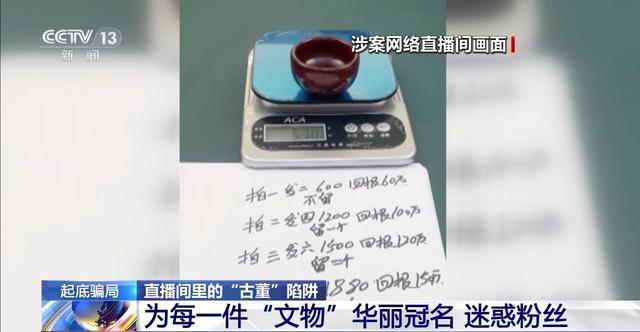 CCTV 13
新闻
涉案网络直播间画面
ACA
拍一发二600回报60万
不留
拍二发四1200回报100万
留一个
拍三发六1500回报120万
留二个
1880回报15万
起底骗局
直播间里的“古董”陷阱
为每一件“文物”华丽冠名 迷惑粉丝